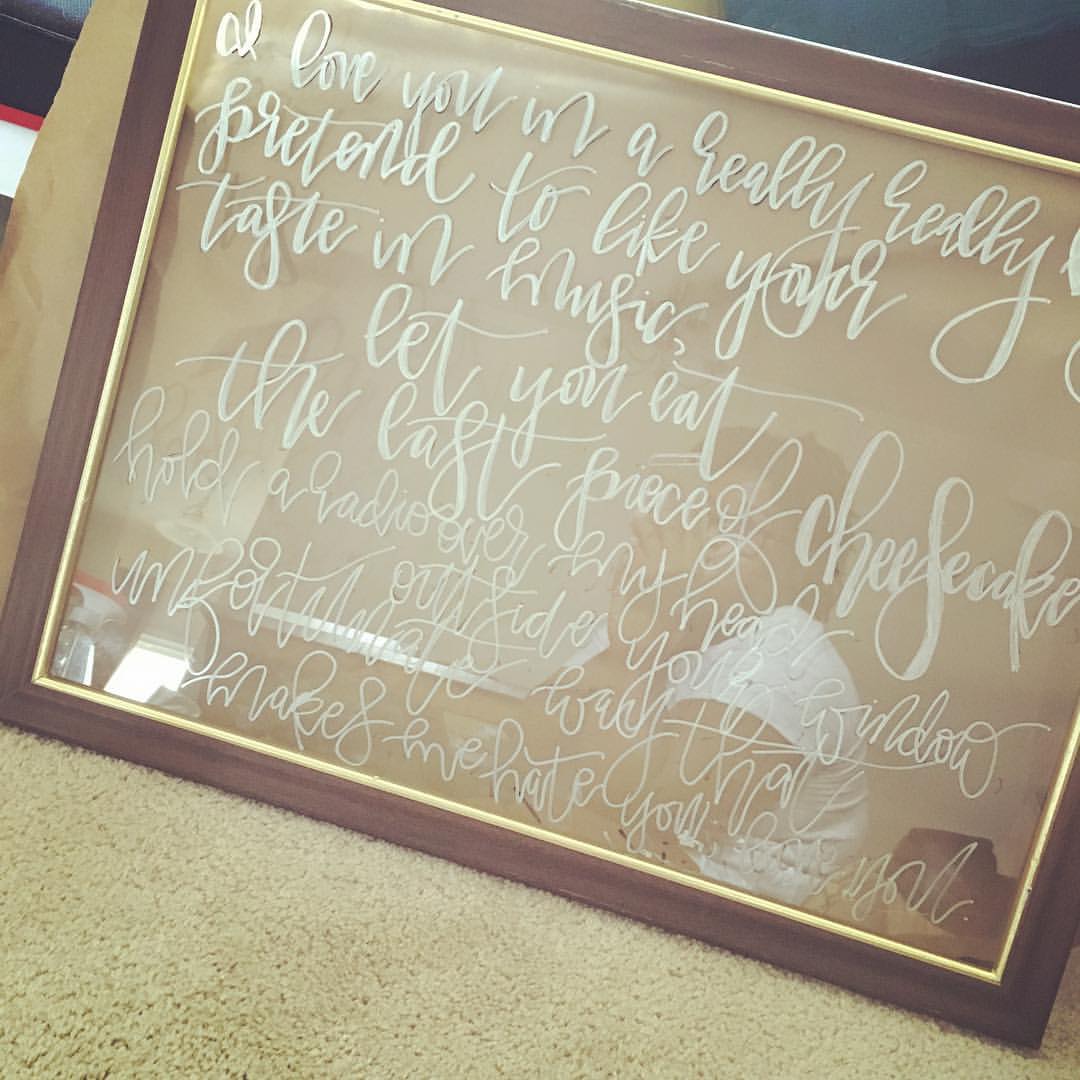 I love you in a really really
pretend to like your
taste in music,
let you eat
the last piece of cheesecake
hold a radio over my head
outside your window
unfortunate way that
makes me hate you, love you.